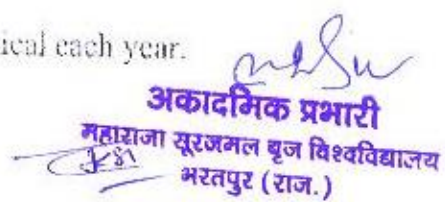 ical each year.
अकादमिक प्रभारी
महाराजा सूरजमल बृज विश्वविद्यालय
भरतपुर (राज.)